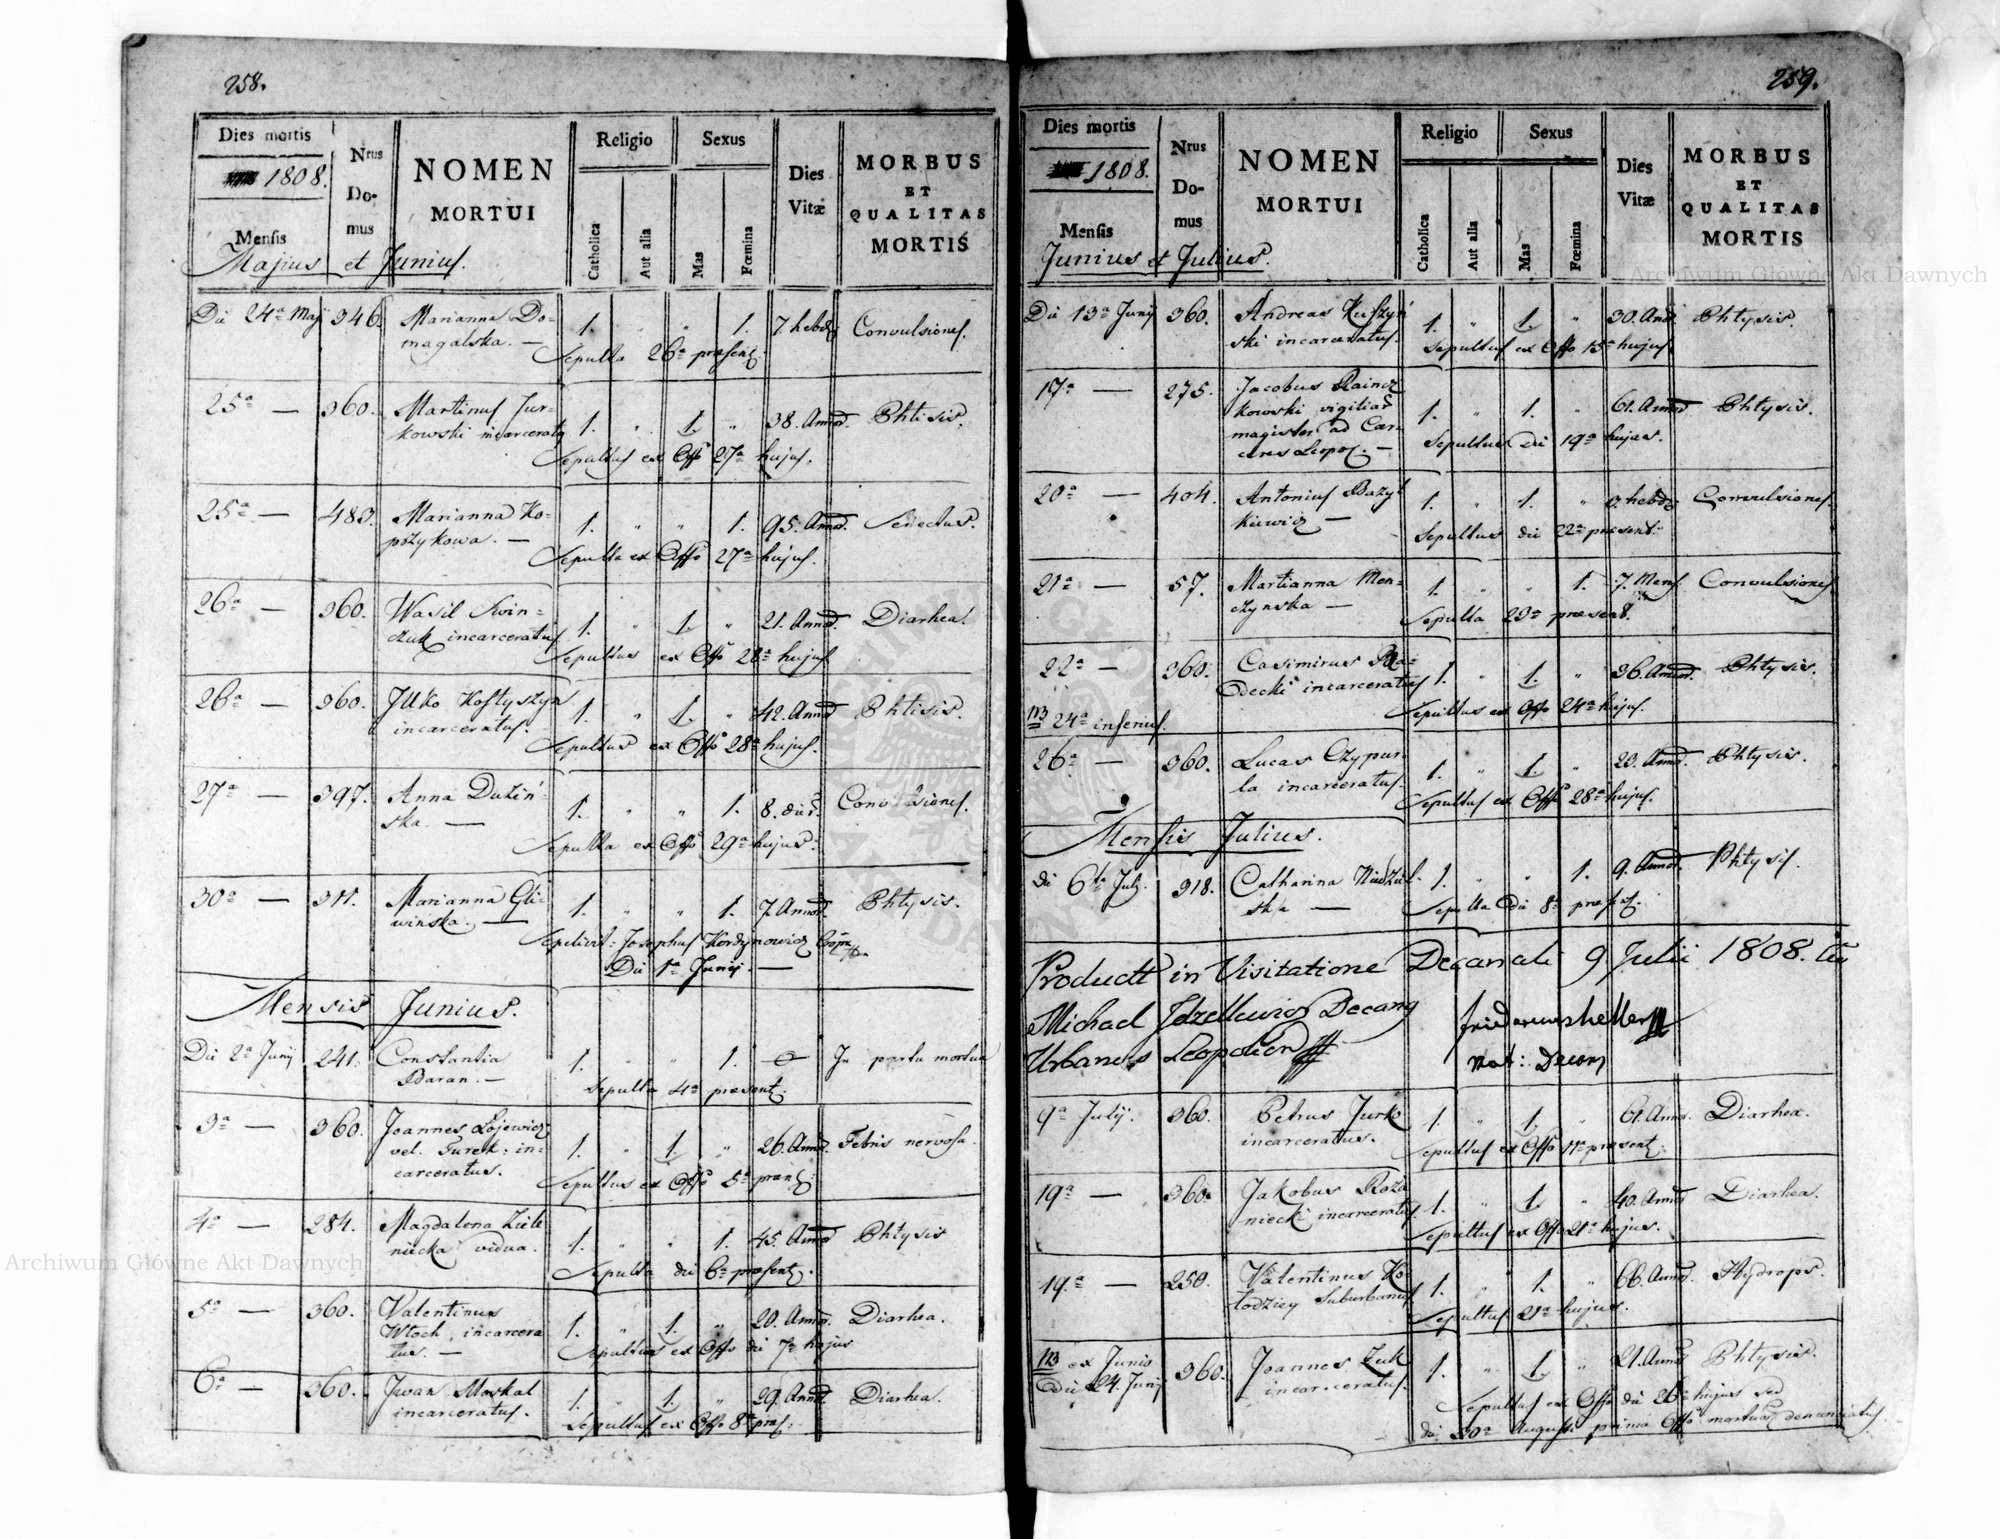 258.
Dies mortis
1808.
Mensis
Majius et Junius.
Nrus
Do-
mus
NOMEN
MORTUI
Religio
Catholica
Aut alia
Sexus
Mas
Fœmina
Dies
Vitæ
MORBUS
ET
QUALITAS
MORTIS
Die 24a Maji 346. Marianna Do- 1. " " 1. 7 hebd. Convulsiones.
magalska. —
Sepulta 26a præsent.
25a — 360. Martinus Jur- 1. " 1. " 38. Annor. Phtisis.
kowski incarceratus
Sepultus ex Offo 27a hujus.
25a — 483. Marianna Ko- 1. " " 1. 95. Annor. Senectus.
pożykowa. —
Sepulta ex Offo 27a hujus.
26a — 360. Wasil Swin- 1. " 1. " 21. Annor. Diarhea.
czuk incarceratus
Sepultus ex Offo 28a hujus
26a — 360. Ilko Kostyszyn 1. " 1. " 42. Annor. Phtisis.
incarceratus.
Sepultus ex Offo 28a hujus.
27a — 397. Anna Duzin- 1. " " 1. 8. dier. Convulsiones.
ska. —
Sepulta ex Offo 29a hujus.
30a — 311. Marianna Gli- 1. " " 1. 7. Annor. Phtysis.
winska. —
Sepelivit: Josephus Kordynowicz
Die 1a Junij. —
Mensis Junius.
Die 2a Junij 241. Constantia 1. " " 1. In partu mortua
Baran. —
Sepulta 4a præsent.
3a — 360. Joannes Łojewicz 1. " 1. " 26. Annor. Febris nervosa.
vel. Turek: in-
carceratus.
Sepultus ex Offo 5a
4a — 284. Magdalena Ziele 1. " " 1. 45. Annor Phtysis
niecka vidua.
Sepulta die 6a præsent.
5a — 360. Valentinus 1. " 1. " 20. Annor. Diarhea.
Włoch, incarcera
tus. —
Sepultus ex Offo die 7a hujus
6a — 360. Iwan Moskal 1. " 1. " 29. Annor Diarhea.
incarceratus.
Sepultus ex Offo 8a præs.
259.
Dies mortis
1808.
Mensis
Junius et Julius.
Nrus
Do-
mus
NOMEN
MORTUI
Religio
Catholica
Aut alia
Sexus
Mas
Fœmina
Dies
Vitæ
MORBUS
ET
QUALITAS
MORTIS
Die 13a Junij 360. Andreas Kuszyń 1. " 1. " 30. Annor. Phtysis.
ski incarceratus.
Sepultus ex Offo 15a hujus
17a — 275. Jacobus Raincz 1. " 1. " 61. Annor Phtysis.
kowski vigiliar
magister ad Car-
ceres Leopol. —
Sepultus die 19a hujus.
20a — 404. Antonius Bazyl 1. " 1. " hebd. Convulsiones.
kiewicz —
Sepultus die 22a præsent.
21a — 57. Martianna Men- 1. " " 1. 7. Mens. Convulsiones
czynska —
Sepulta 23a præsent.
22a — 360. Casimirus 1. " 1. " 36. Annor. Phtysis.
decki incarceratus
Sepultus ex Offo 24a hujus.
NB 24a inferius.
26a — 360. Lucas Czypur- 1. " 1. " 23. Annor. Phtysis.
la incarceratus.
Sepultus ex Offo 28a hujus.
Mensis Julius.
die 6ta July. 318. Catharina Niedziel- 1. " " 1. 9. Annor. Phtysis.
ska —
Sepulta die 8a
Productt in Visitatione Decanali 9 Julii 1808.
Michael Decang
Urbanus Leopolien
Not: Decan
9a July. 360. Petrus Jurko 1. " 1. " 61. Annor. Diarhea.
incarceratus.
Sepultus ex Offo 11a præsent.
19a — 360. Jakobus Roza 1. " 1. " 40. Annor Diarhea.
niecki incarceratus.
Sepultus ex Offo 21a hujus.
19a — 250. Valentinus Ko- 1. " 1. " 66. Annor. Hydrops.
łodziey Suburbanus
Sepultus 21a hujus.
NB ex Junio 360. Joannes Zuk 1. " 1. " 21. Annor Phtysis.
Die 24. Junij incarceratus.
Sepultus ex Offo die 26a hujus sed
die 20a Augusti prima Offo mortuus denunciatus.
Archiwum Główne Akt Dawnych
Archiwum Główne Akt Dawnych